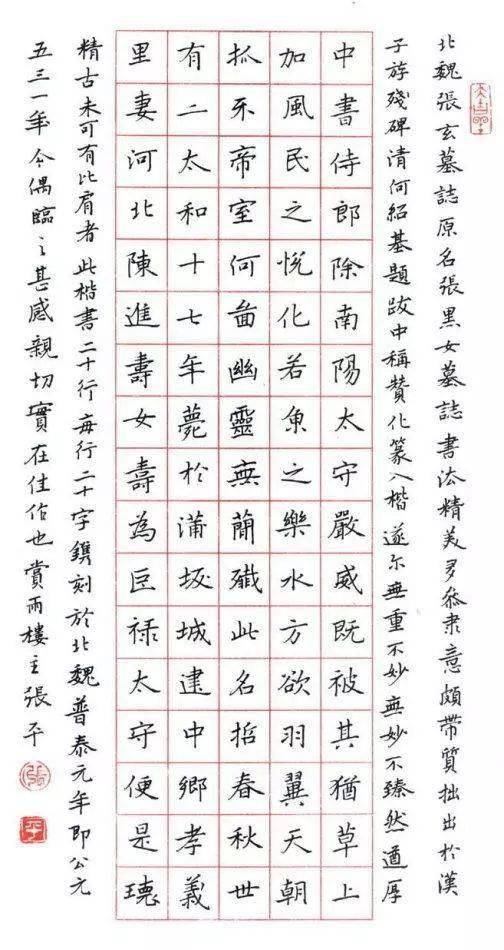 北魏張玄墓誌原名張黑女墓誌書法精美多叅隶意頗帶質拙出於漢
子游殘碑清何紹基題跋中稱贊化篆入楷遂尔無重不妙無妙不臻然遒厚
中書侍郎除南陽太守嚴威既被其猶草上
加風民之悅化若魚之樂水方欲羽翼天朝
抓牙帝室何啚幽靈無簡殱此名哲春秋世
有二太和十七年薨於蒲坂城建中鄉孝義
里妻河北陳進壽女壽為巨祿太守便是瓌
精古未可有比肩者此楷書二十行每行二十字鐫刻於北魏普泰元年即公元
五三一年今偶臨之甚感親切實在佳作也賞雨樓主張平
張
平